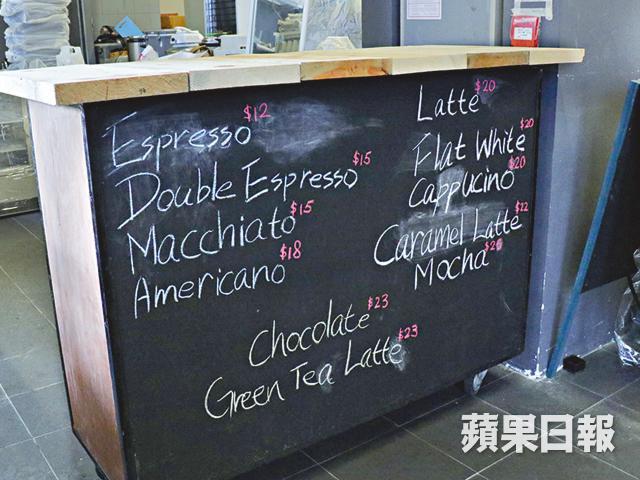 Espresso $12
Double Espresso $15
Macchiato $15
Americano $18
Latte $20
Flat White $20
Cappucino $20
Caramel Latte $22
Mocha
Chocolate $23
Green Tea Latte $23
蘋果日報